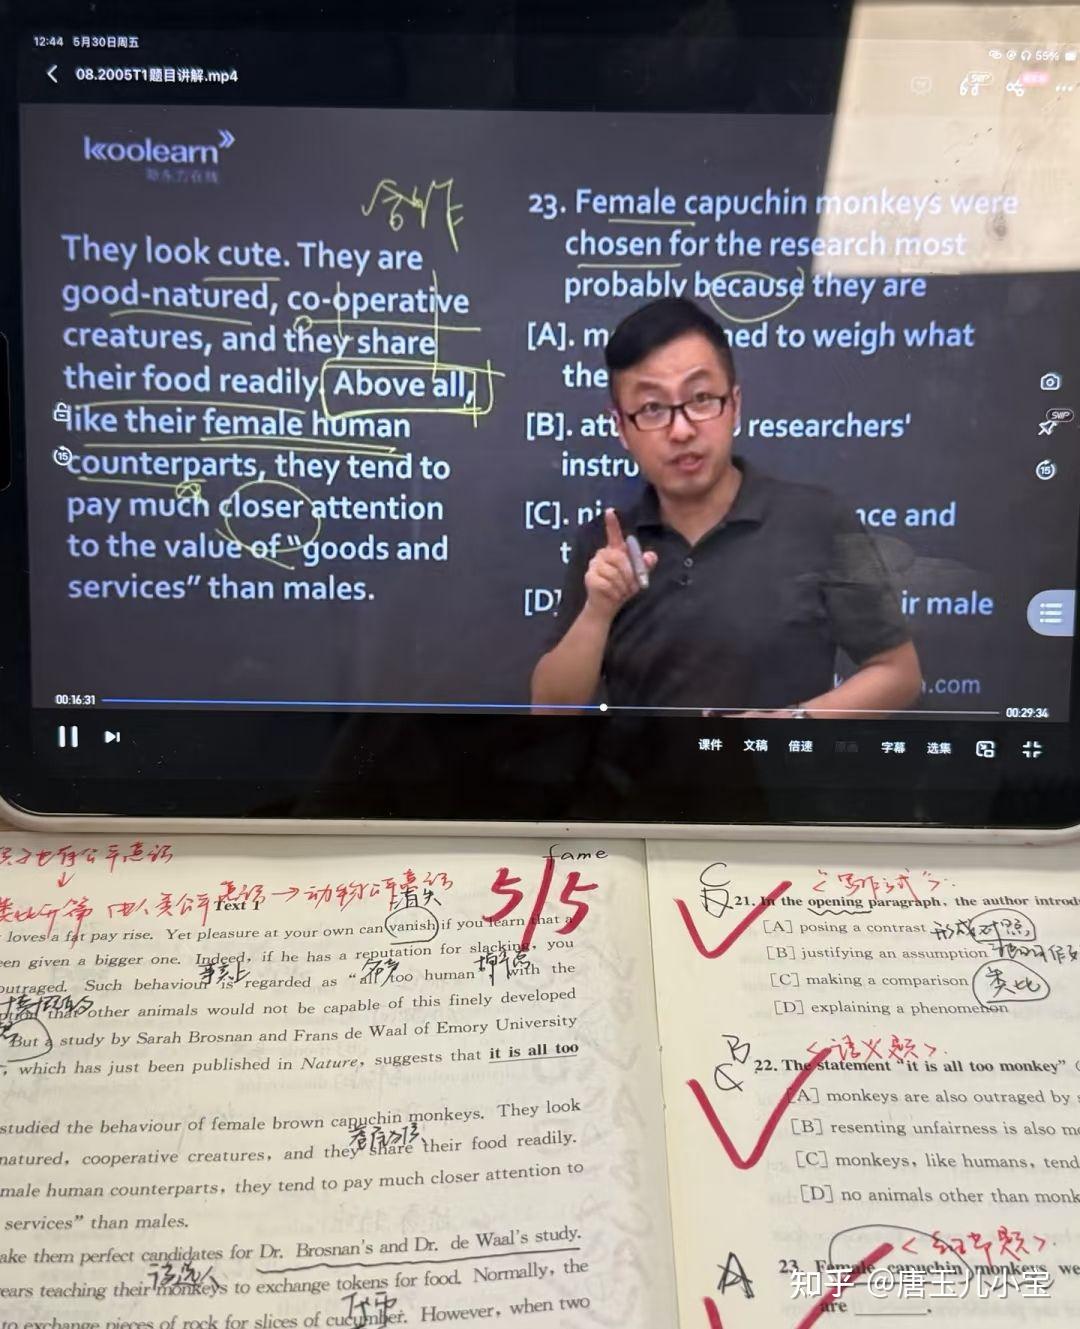 12:44 5月30日周五
55%
08.2005T1题目讲解.mp4
SVIP
koolearn
新东方在线
合作
They look cute. They are
good-natured, co-operative
creatures, and they share
their food readily. Above all,
like their female human
counterparts, they tend to
pay much closer attention
to the value of "goods and
services" than males.
23. Female capuchin monkeys were
chosen for the research most
probably because they are
[A]. m ned to weigh what
the
[B]. att researchers'
instru
[C]. ni nce and
t
[D] ir male
.com
SVIP
15
15
00:16:31
00:29:34
课件 文稿 倍速 原画 字幕 选集
fame
5/5
Text 1
消失
loves a fat pay rise. Yet pleasure at your own can vanish if you learn that a
een given a bigger one. Indeed, if he has a reputation for slacking, you
事实上
名声
outraged. Such behaviour is regarded as "all too human", with the
that other animals would not be capable of this finely developed
But a study by Sarah Brosnan and Frans de Waal of Emory University
, which has just been published in Nature, suggests that it is all too
studied the behaviour of female brown capuchin monkeys. They look
natured, cooperative creatures, and they share their food readily.
male human counterparts, they tend to pay much closer attention to
services" than males.
ake them perfect candidates for Dr. Brosnan's and Dr. de Waal's study.
候选人
ears teaching their monkeys to exchange tokens for food. Normally, the
代币
to exchange pieces of rock for slices of cucumber. However, when two
C
<写作式>
21. In the opening paragraph, the author introd
[A] posing a contrast 形成对照
[B] justifying an assumption
[C] making a comparison 类比
[D] explaining a phenomenon
B
<语义题>
22. The statement "it is all too monkey"
[A] monkeys are also outraged by s
[B] resenting unfairness is also m
[C] monkeys, like humans, tend
[D] no animals other than monk
<细节题>
A
23. Female capuchin monkeys we
are ______.
知乎 @唐玉儿小宝